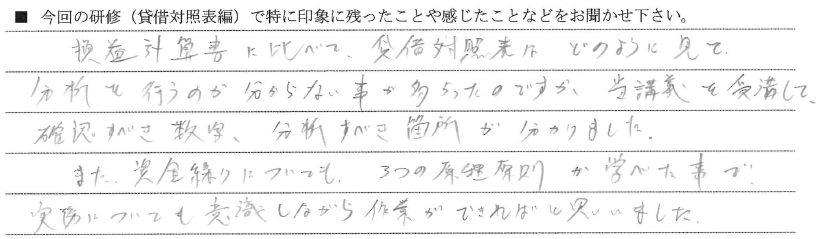 ■ 今回の研修（貸借対照表編）で特に印象に残ったことや感じたことなどをお聞かせ下さい。
損益計算書に比べて、貸借対照表は どのように見て、
分析を行うのか分からない事が多かったのですが、当講義を受講して、
確認すべき数字、分析すべき箇所が分かりました。
また、資金繰りについても、3つの原理原則が学べた事で、
実務についても意識しながら作業ができればと思いました。